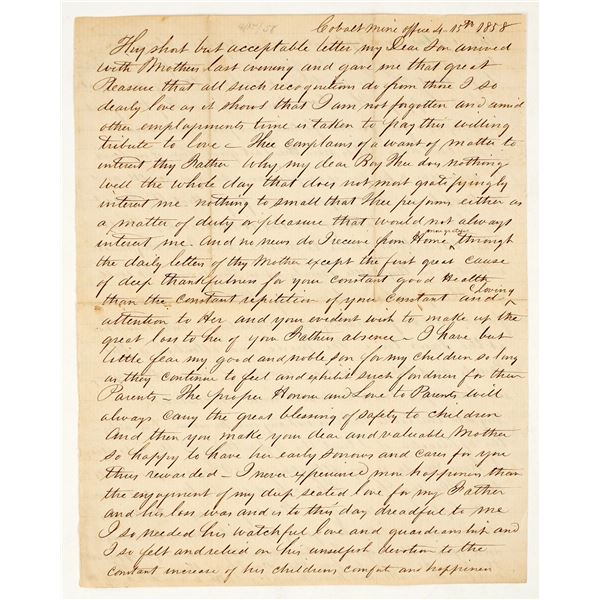 Cobalt Mine Office 4-15th 1858
Thy short but acceptable letter my Dear Son arrived
with Mothers last evening and gave me that great
Pleasure that all such recognitions do from those I so
dearly love as it shows that I am not forgotten and amid
other employments time is taken to pay this willing
tribute to love — Thee complains of a want of matter to
interest thy Father Why my dear Boy Thee does nothing
well the whole day that does not most gratifyingly
interest me. nothing to small that Thee performs either as
a matter of duty or pleasure that would not always
interest me. And no news do I receive from Home more grateful through
the daily letter of thy Mother except the first great cause
of deep thankfulness for your constant good Health
than the constant repitition of your constant and loving
attention to Her and your evident wish to make up the
great loss to her of your Fathers absence — I have but
little fear my good and noble son for my children so long
as they continue to feel and exhibit such fondness for their
Parents — The proper Honour and Love to Parents will
always carry the great blessing of safety to children
And then you make your dear and valuable Mother
so happy to have her early sorrows and cares for you
thus rewarded — I never experienced more happiness than
the enjoyment of my deep seated love for my Father
and his loss was and is to this day dreadful to me
I so needed his watchful love and guardianship and
I so felt and relied on his unselfish devotion to the
constant increase of his childrens comfort and happiness